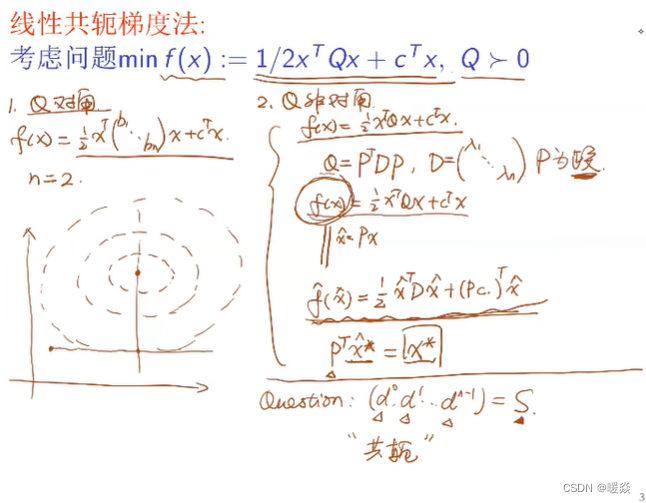 线性共轭梯度法:
考虑问题min f(x) := 1/2xᵀQx + cᵀx, Q ≻ 0
1. Q对角
f(x) = ½xᵀ(b₁ ⋱ bₙ)x + cᵀx.
n=2.
2. Q非对角
f(x) = ½xᵀQx + cᵀx.
Q = PᵀDP, D = (λ₁ ⋱ λₙ) P为
f(x) = ½xᵀQx + cᵀx
x̂ = Px
f̂(x̂) = ½x̂ᵀDx̂ + (Pc)ᵀx̂
Pᵀx̂* = x*
Question: (d⁰, d¹ ... dⁿ⁻¹) = S.
"共轭"
3
CSDN @暖焱